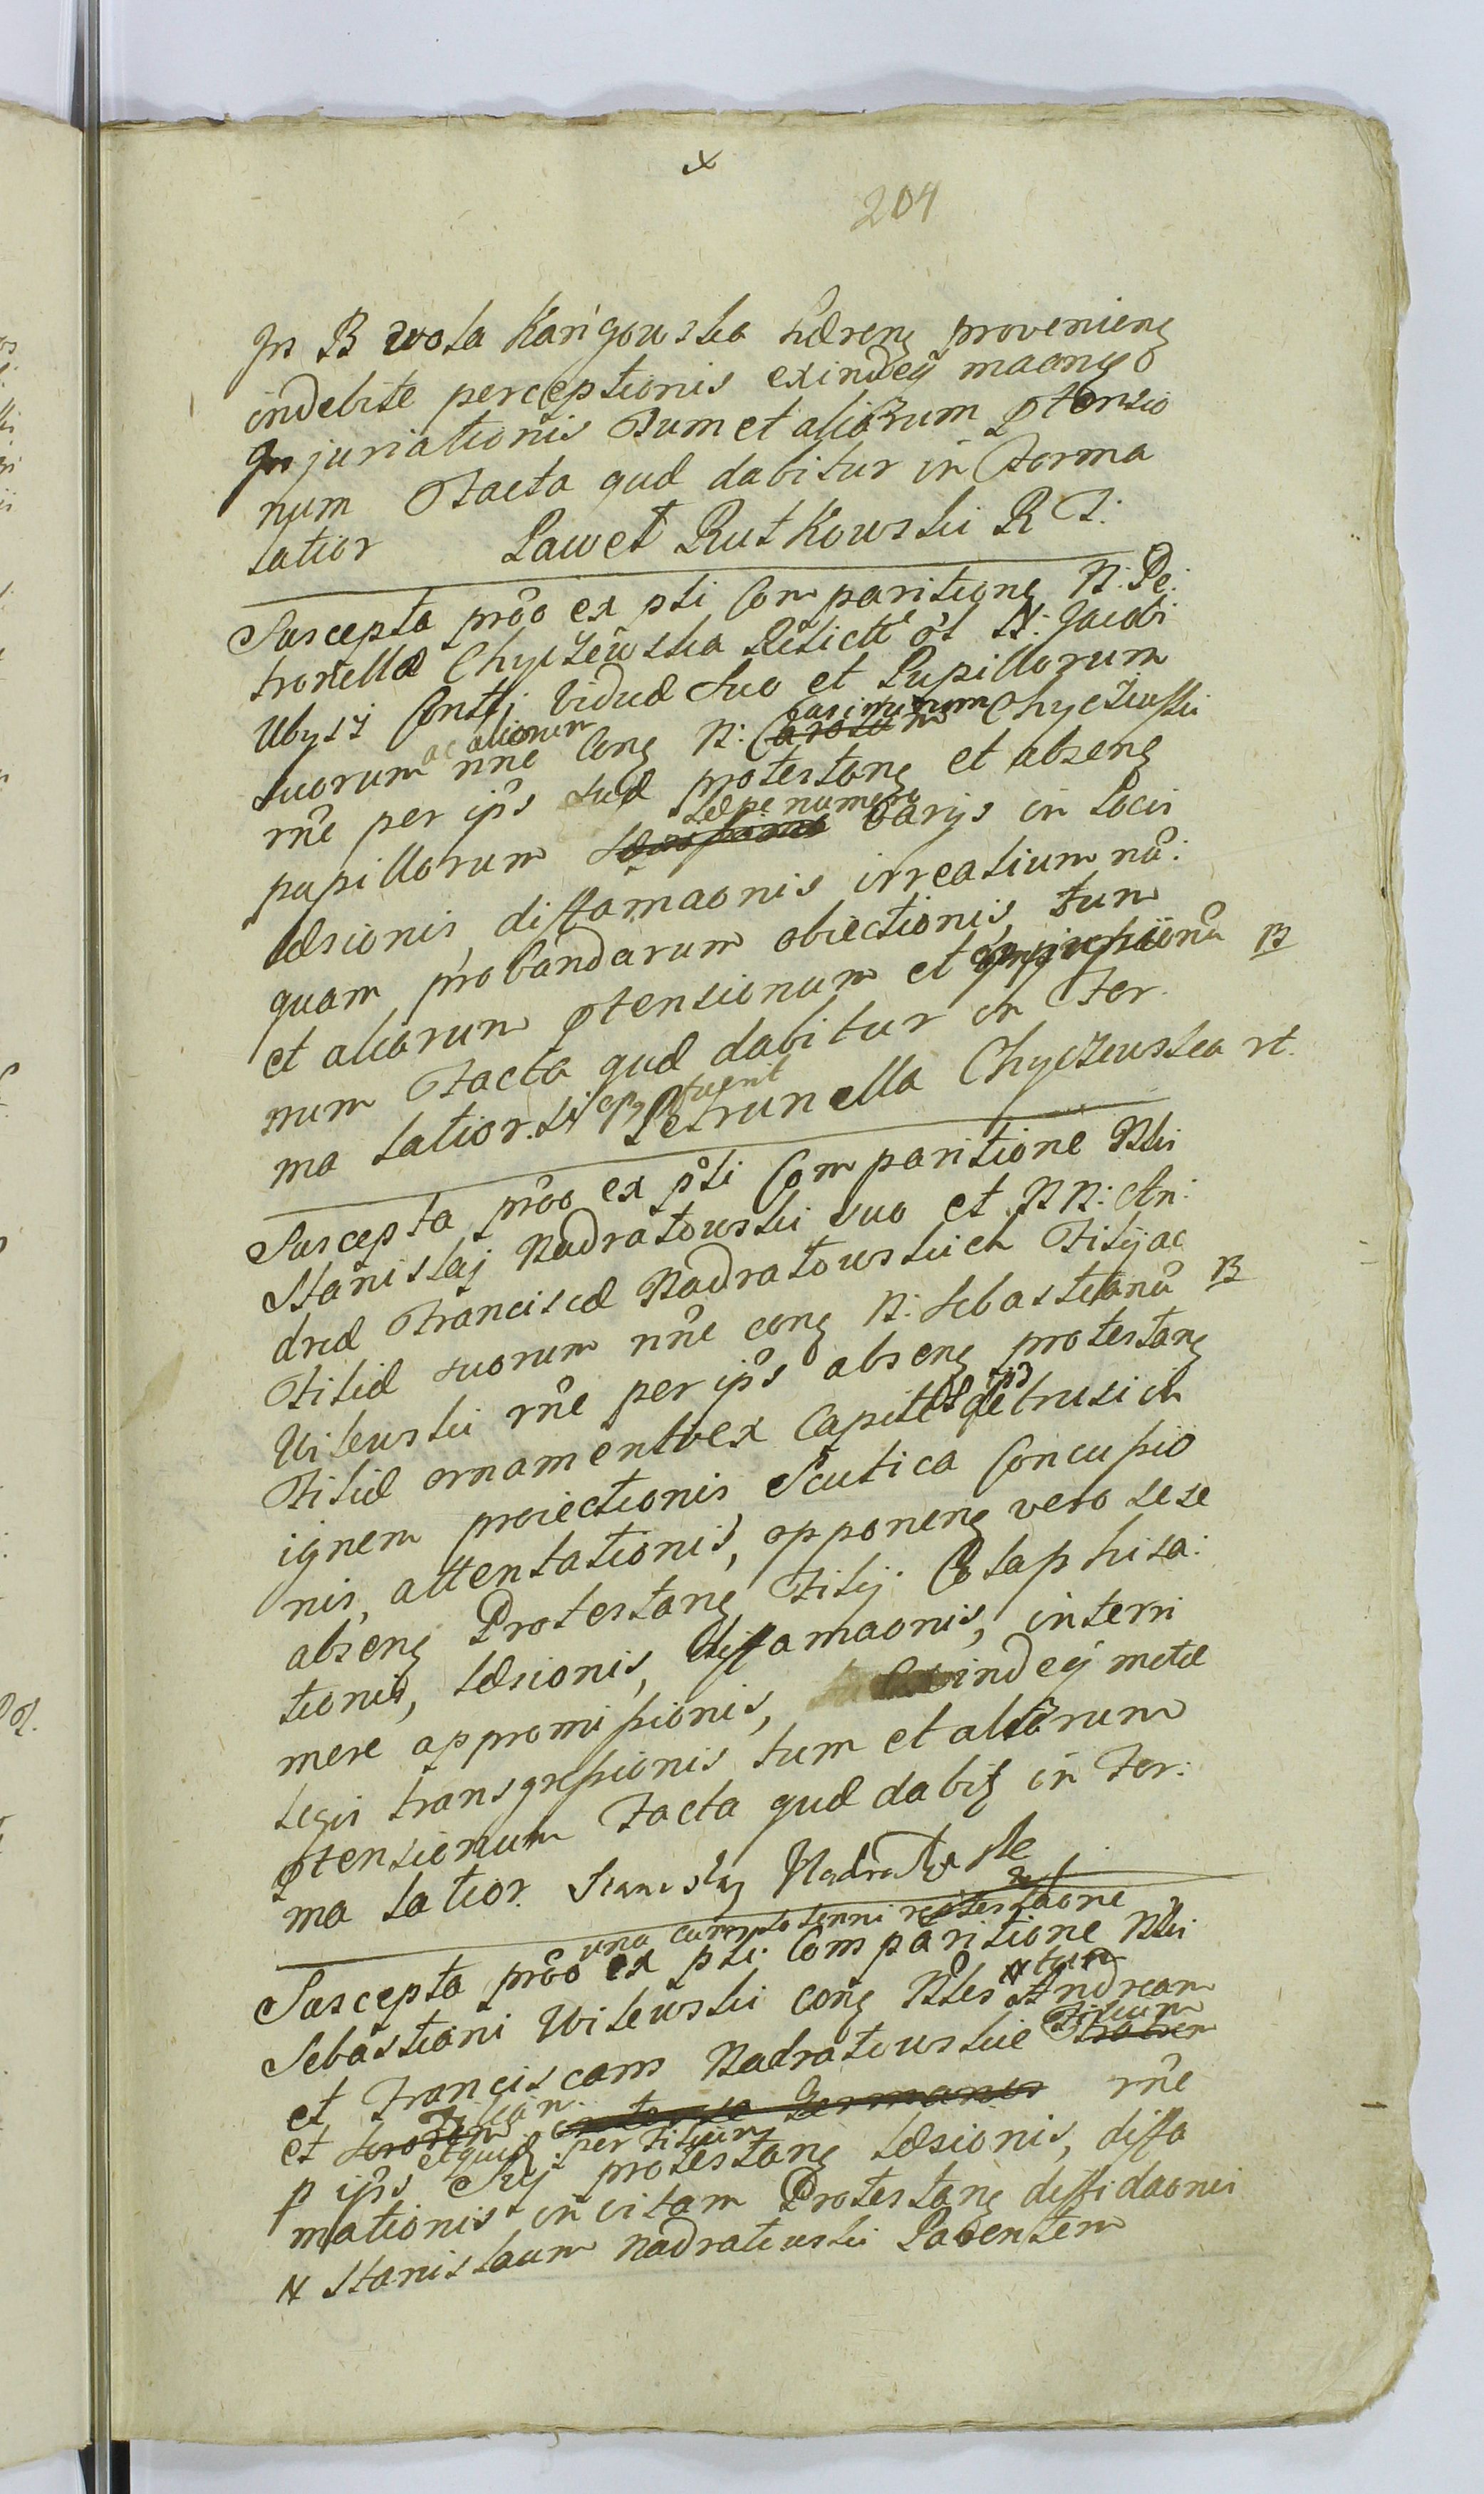 204
In B Wola Karigowska haereng provenieng
indebite perceptionis exindeq maong
Injuriationis Tum et aliorum ptensio
num Facta quae dabitur in Forma
latior Pawet Rutkowski R T:
Suscepta prôo ex pti Comparitione N: Pe:
tronellae Chyczewska Relictae ol N: Jacobi
Ubysz Consti Viduae suo et Pupillorum
ac aliorum Casimirum
suorum nne cong N: Chyczewski
rñe per ips suae protestang et abseng
saepe numero
pupillorum varijs in Locis
laesionis, diffamaonis irrealium nū:
quam probandarum obiectionis, tum
et aliorum ptensionum et B
num Facta quae dabitur in For
ma latior. si fuerit Petrunella Chyczewska rt.
Suscepta prôo ex pti Comparitione Nbli
Stanislaj Nadratowski suo et NN: An:
dreae Franciscae Nadratowskich Filij ac
Filiae suorum nñe cong N: Sebastianū B
Witewski rñe per ips abseng protestang
Filiae ornamentu ex Capite detrusi in
ignem proiectionis Scutica Concussio
nis, attentationis, opponeng vero sese
abseng Protestang Filij Colaphisa:
tionis, laesionis, diffamaonis, interi
mere appromissionis, exindeq metae
legis transgressionis tum et aliorum
ptensionum Facta quae dabitg in For:
ma latior. Stanislaj Nadratowski
una cum protestaone
Suscepta prôo ex pti Comparitione Nbli
Sebastiani Witewski cong Nbles Andream
Filium
et Franciscam Nadratowskie fratrem
Filiam
et sororem inter se Germanos rñe
per Filium
p ips Suj protestang laesionis, diffa
mationis in vitam Protestang diffidaonis
N Stanislaum Nadratewski Parentem